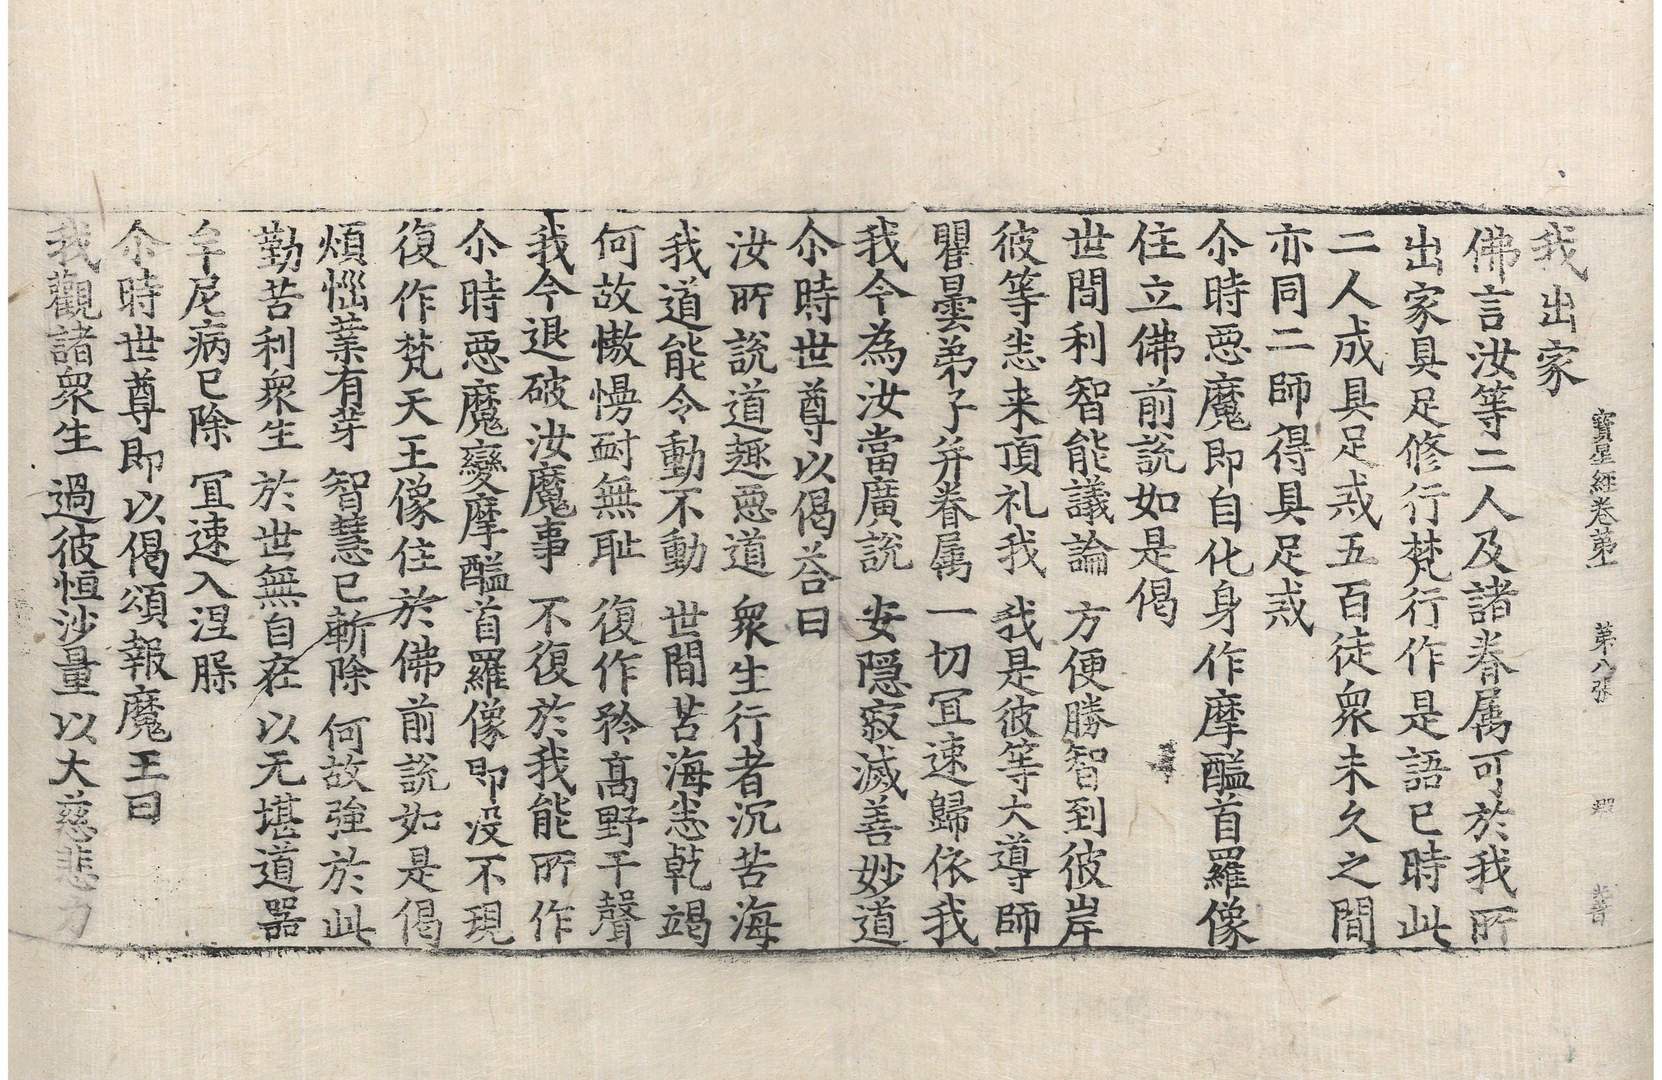 寶星經卷第一 第八張
我出家
佛言汝等二人及諸眷属可於我所
出家具足修行梵行作是語已時此
二人成具足戒五百徒衆未久之間
亦同二師得具足戒
尒時惡魔即自化身作摩醯首羅像
住立佛前說如是偈
世間利智能議論 方便勝智到彼岸
彼等悉来頂礼我 我是彼等大導師
瞿曇弟子并眷属 一切冝速歸依我
我今為汝當廣說 安隠寂滅善妙道
尒時世尊以偈荅曰
汝所說道趣惡道 衆生行者沉苦海
我道能令動不動 世間苦海悉乾竭
何故慠慢耐無耻 復作矜髙野干聲
我今退破汝魔事 不復於我能所作
尒時惡魔變摩醯首羅像即没不現
復作梵天王像住於佛前說如是偈
煩惱業有芽 智慧已斬除 何故強於此
勤苦利衆生 於世無自在 以无堪道器
牟尼病已除 冝速入涅槃
尒時世尊即以偈頌報魔王曰
我觀諸衆生 過彼恒沙量 以大慈悲力